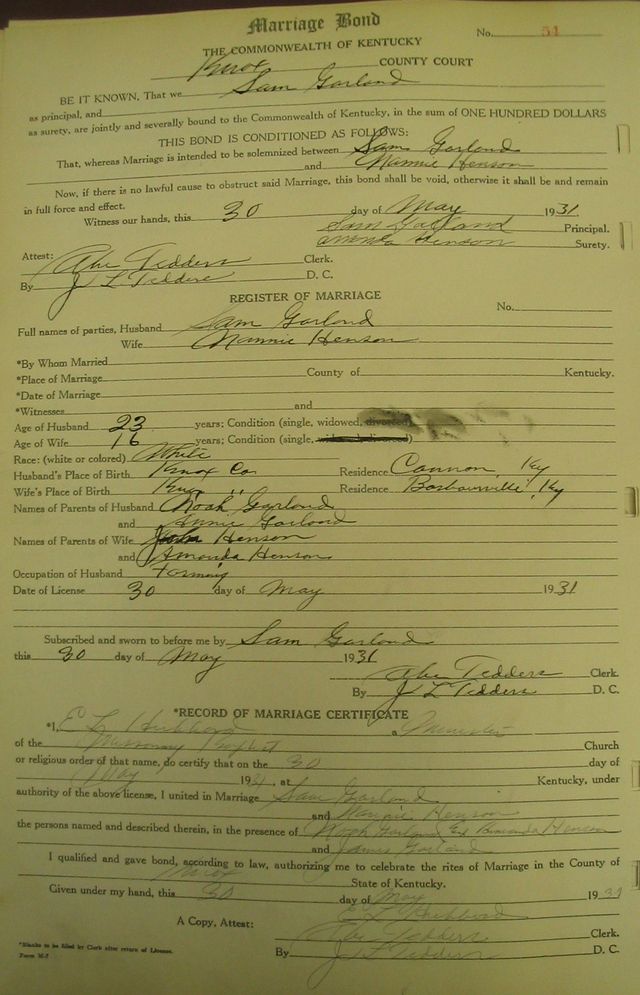 Marriage Bond
No. 51
THE COMMONWEALTH OF KENTUCKY
Knox COUNTY COURT
BE IT KNOWN, That we Sam Garland
as principal, and
as surety, are jointly and severally bound to the Commonwealth of Kentucky, in the sum of ONE HUNDRED DOLLARS
THIS BOND IS CONDITIONED AS FOLLOWS:
That, whereas Marriage is intended to be solemnized between Sam Garland
and Nannie Henson
Now, if there is no lawful cause to obstruct said Marriage, this bond shall be void, otherwise it shall be and remain
in full force and effect.
Witness our hands, this 30 day of May 1931
Sam Garland Principal.
Amanda Henson Surety.
Attest: Abe Tedders Clerk.
By J L Tedders D. C.
REGISTER OF MARRIAGE
No.
Full names of parties, Husband Sam Garland
Wife Nannie Henson
*By Whom Married
*Place of Marriage County of Kentucky.
*Date of Marriage
*Witnesses and
Age of Husband 23 years; Condition (single, widowed, divorced)
Age of Wife 16 years; Condition (single, widowed, divorced)
Race: (white or colored) White
Husband's Place of Birth Knox Co. Residence Cannon, Ky
Wife's Place of Birth Knox " Residence Barbourville, Ky
Names of Parents of Husband Noah Garland
and Annie Garland
Names of Parents of Wife John Henson
and Amanda Henson
Occupation of Husband Farming
Date of License 30 day of May 1931
Subscribed and sworn to before me by Sam Garland
this 30 day of May 1931
Abe Tedders Clerk.
By J L Tedders D. C.
*RECORD OF MARRIAGE CERTIFICATE
*I, E L Hubbard a Minister
of the Missionary Baptist Church
or religious order of that name, do certify that on the 30 day of
May 1931, at Kentucky, under
authority of the above license, I united in Marriage Sam Garland
and Nannie Henson
the persons named and described therein, in the presence of Noah Garland and Amanda Henson
and James Garland
I qualified and gave bond, according to law, authorizing me to celebrate the rites of Marriage in the County of
Knox State of Kentucky.
Given under my hand, this 30 day of May 1931
E L Hubbard
A Copy, Attest: Abe Tedders Clerk.
By J L Tedders D. C.
*Blanks to be filled by Clerk after return of License.